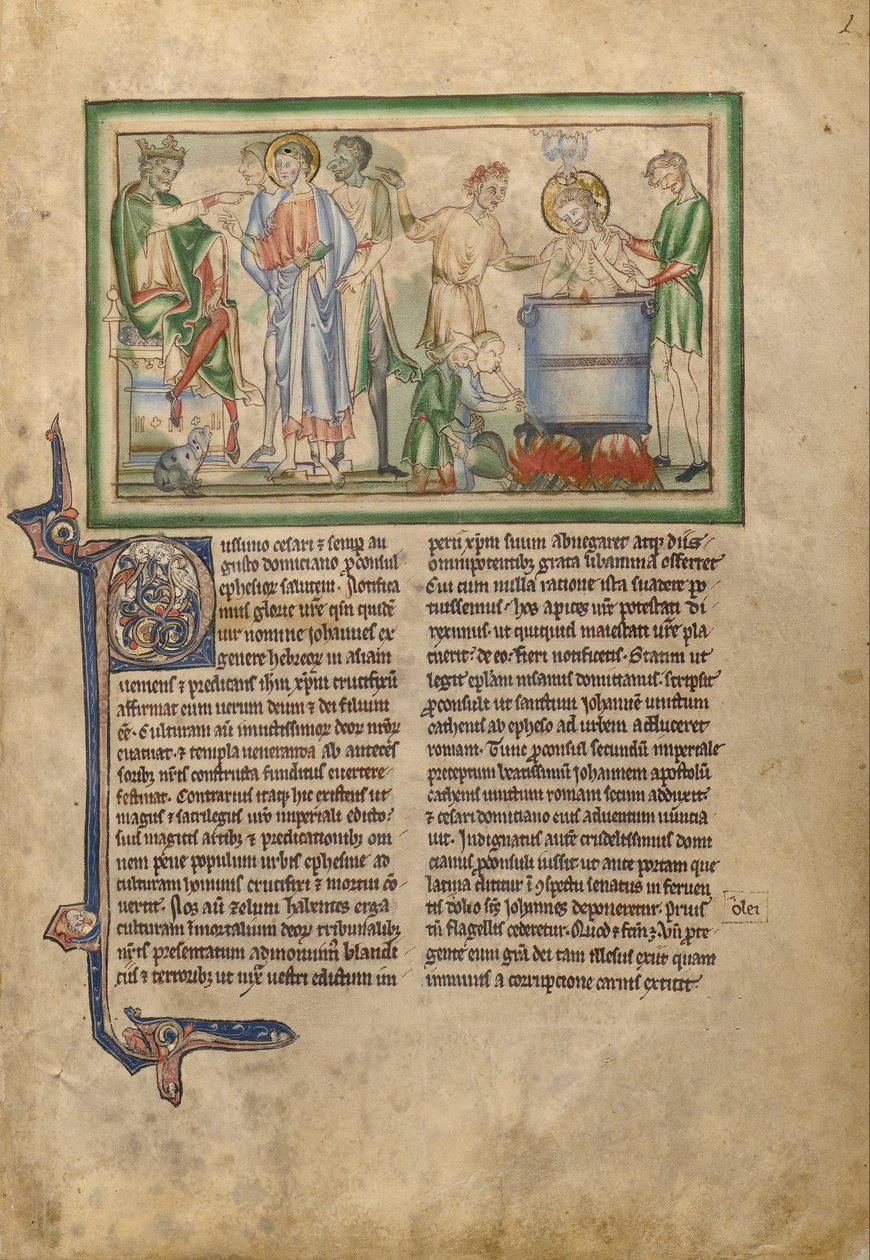 1
ussuno cesari ⁊ semꝑ au
gusto domiciano ꝓconsul
ephesioꝝ salutem. Notifica
mus glorie vr̄e qm̄ quidē
uir nomine iohannes ex
genere hebreoꝝ in asiam
ueniens ⁊ predicans ihm̄ xp̄m crucifixū
affirmat eum uerum deum ⁊ dei filium
eē. Culturam aū inuictissimoꝝ deoꝝ nr̄oꝝ
euacuat. ⁊ templa ueneranda ab anteces
soribꝫ nr̄is constructa funditus euertere
festinat. Contrarius itaqꝫ hic existens ut
magus ⁊ sacrilegus ur̄o imperiali edicto
suis magicis artibꝫ ⁊ predicationibꝫ om
nem pene populum urbis ephesine ad
culturam hominis crucifixi ⁊ mortui cō
uertit. Nos aū zelum habentes erga
culturam īmortalium deoꝝ tribunalibꝫ
nr̄is presentatum admonuim᷒ blandi
ciis ⁊ terroribꝫ ut iux̄ vestri edictum im
perii xp̄m suum abnegaret atqꝫ diis
omnipotentibꝫ grata libamina offerret
Cui cum nulla ratione ista suadere po
tuissemus. hos apices vr̄e potestati di
reximus. ut quicquid maiestati vr̄e pla
cuerit. de eo. fieri notificetis. Statim ut
legit ep̄lam insanus domicianus. scripsit
ꝓconsuli ut sanctum iohannē uinctum
cathenis ab epheso ad urbem adduceret
romam. Tunc ꝓconsul secundū imperiale
preceptum beatissimū iohannem apostolū
cathenis uinctum romam secum adduxit
⁊ cesari domiciano eius aduentum nūncia
uit. Indignatus autē crudelissimus domi
cianus ꝓconsuli iussit ut ante portam que
latina dicitur ī ꝯspectu senatus in feruen
tis dolio sc̄s iohannes deponeretur. prius
olei
tn̄ flagellis cederetur. Quod ⁊ fcm̄ ꝫ. dn̄o prote
gente eum grā dei tam illesus exiit quam
inmunis a corrupcione carnis extitit.